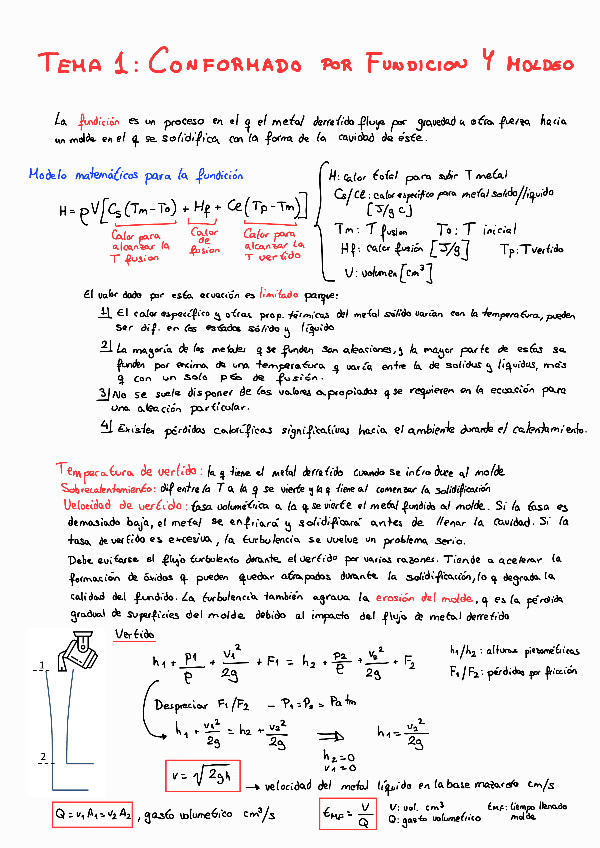 TEMA 1: CONFORMADO POR FUNDICION Y MOLDEO
La fundición es un proceso en el q el metal derretido fluye por gravedad u otra fuerza hacia
un molde en el q se solidifica con la forma de la cavidad de éste.
Modelo matemáticos para la fundición
H = ρV[Cs(Tm-To) + Hf + Cl(Tp-Tm)]
Calor para alcanzar la T fusion
Calor de fusion
Calor para alcanzar la T vertido
H: calor total para subir T metal
Cs/Cl: calor específico para metal solido/liquido
[J/g C]
Tm: T fusion To: T inicial
Hf: calor fusión [J/g] Tp: T vertido
V: volumen [cm³]
El valor dado por esta ecuación es limitado porque:
1| El calor específico y otras prop. térmicas del metal sólido varían con la temperatura, pueden
ser dif. en los estados sólido y líquido
2| La mayoría de los metales q se funden son aleaciones, y la mayor parte de estas se
funden por encima de una temperatura q varía entre la de solidus y liquidus, más
q con un solo pto de fusión.
3| No se suele disponer de los valores apropiados q se requieren en la ecuación para
una aleación particular.
4| Existen pérdidas caloríficas significativas hacia el ambiente durante el calentamiento.
Temperatura de vertido: la q tiene el metal derretido cuando se introduce al molde
Sobrecalentamiento: dif entre la T a la q se vierte y la q tiene al comenzar la solidificación
Velocidad de vertido: tasa volumétrica a la q se vierte el metal fundido al molde. Si la tasa es
demasiado baja, el metal se enfriará y solidificará antes de llenar la cavidad. Si la
tasa de vertido es excesiva, la turbulencia se vuelve un problema serio.
Debe evitarse el flujo turbulento durante el vertido por varias razones. Tiende a acelerar la
formación de óxidos q pueden quedar atrapados durante la solidificación, lo q degrada la
calidad del fundido. La turbulencia también agrava la erosión del molde, q es la pérdida
gradual de superficies del molde debido al impacto del flujo de metal derretido
Vertido
1
2
h1 + p1/ρ + v1²/2g + F1 = h2 + p2/ρ + v2²/2g + F2
h1/h2: alturas piezométricas
F1/F2: pérdidas por fricción
Despreciar F1/F2 - P1=P2=Patm
h1 + v1²/2g = h2 + v2²/2g ⟹ h1 = v2²/2g
h2=0
v1=0
v = √2gh → velocidad del metal líquido en la base mazarota cm/s
Q = v1A1 = v2A2, gasto volumétrico cm³/s
tMF = V/Q
V: vol. cm³
Q: gasto volumétrico
tMF: tiempo llenado
molde